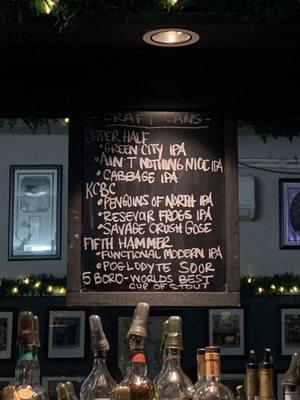 - CRAFT CANS -
OTHER HALF
• GREEN CITY IPA
• AIN'T NOTHING NICE IPA
• CABBAGE IPA
KCBC
• PENGUINS OF NORTH IPA
• RESEVOIR FROGS IPA
• SAVAGE CRUSH GOSE
FIFTH HAMMER
• FUNCTIONAL MODERN IPA
• POGLODYTE SOOR
5 BORO - WORLDS BEST
CUP OF STOUT